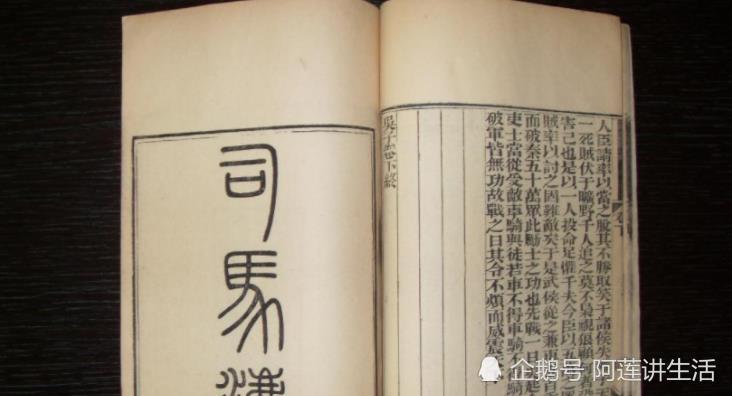 人臣請率以當之脫其不勝取笑于諸侯失
一死賊伏于曠野千人追之莫不梟視狼顧
害己也是以一人投命足懼千夫今臣以五
賊率以討之固難敵矣于是武侯從之兼
而破秦五十萬眾此勵士之功也先戰一日吳起
吏士當從受敵車騎與徒若車不得車騎不
破軍皆無功故戰之日其令不煩而威震
吳子卷下終
司馬
企鹅号 阿莲讲生活